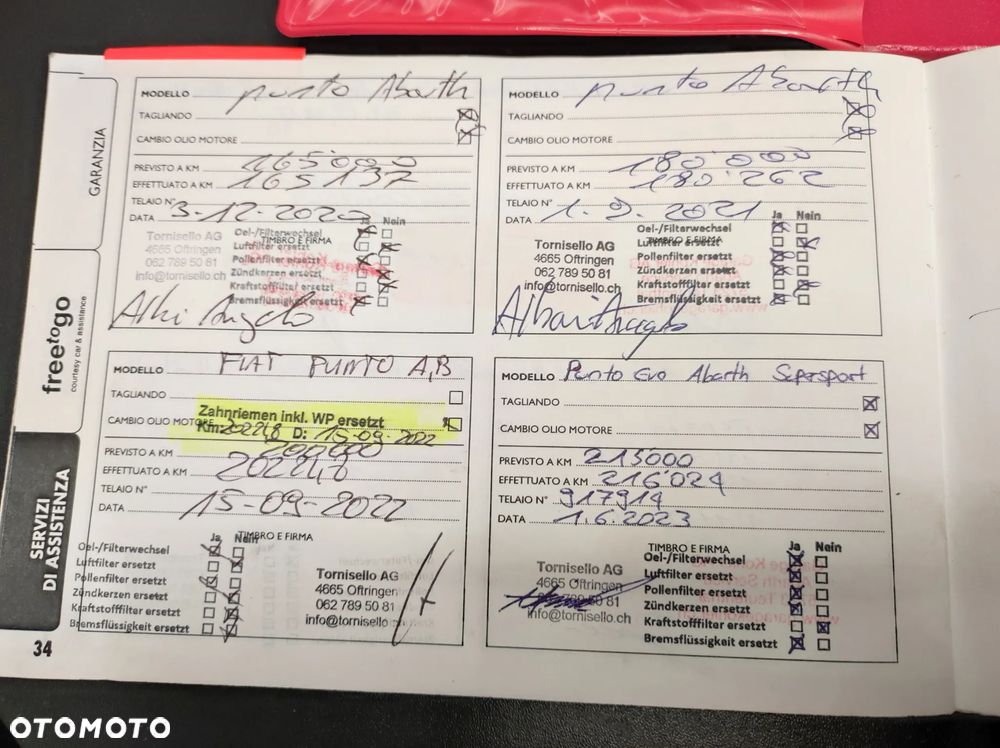 GARANZIA
free to go
courtesy car & assistance
SERVIZI
DI ASSISTENZA
34
MODELLO punto Abarth
TAGLIANDO
CAMBIO OLIO MOTORE
PREVISTO A KM 165000
EFFETTUATO A KM 165137
TELAIO N°
DATA 3-12-2020
Ja Nein
TIMBRO E FIRMA
Oel-/Filterwechsel
Luftfilter ersetzt
Pollenfilter ersetzt
Zündkerzen ersetzt
Kraftstofffilter ersetzt
Bremsflüssigkeit ersetzt
Tornisello AG
4665 Oftringen
062 789 50 81
info@tornisello.ch
MODELLO punto Abarth
TAGLIANDO
CAMBIO OLIO MOTORE
PREVISTO A KM 180'000
EFFETTUATO A KM 180'262
TELAIO N°
DATA 1.9.2021
Ja Nein
TIMBRO E FIRMA
Oel-/Filterwechsel
Luftfilter ersetzt
Pollenfilter ersetzt
Zündkerzen ersetzt
Kraftstofffilter ersetzt
Bremsflüssigkeit ersetzt
Tornisello AG
4665 Oftringen
062 789 50 81
info@tornisello.ch
MODELLO FIAT PUNTO A,B
TAGLIANDO
Zahnriemen inkl. WP ersetzt
CAMBIO OLIO MOTORE
Km: 202248 D: 15-09-2022
PREVISTO A KM 200000
EFFETTUATO A KM 202248
TELAIO N°
DATA 15-09-2022
Ja Nein
TIMBRO E FIRMA
Oel-/Filterwechsel
Luftfilter ersetzt
Pollenfilter ersetzt
Zündkerzen ersetzt
Kraftstofffilter ersetzt
Bremsflüssigkeit ersetzt
Tornisello AG
4665 Oftringen
062 789 50 81
info@tornisello.ch
MODELLO Punto Evo Abarth Supersport
TAGLIANDO
CAMBIO OLIO MOTORE
PREVISTO A KM 215000
EFFETTUATO A KM 216024
TELAIO N° 917914
DATA 1.6.2023
Ja Nein
TIMBRO E FIRMA
Oel-/Filterwechsel
Luftfilter ersetzt
Pollenfilter ersetzt
Zündkerzen ersetzt
Kraftstofffilter ersetzt
Bremsflüssigkeit ersetzt
Tornisello AG
4665 Oftringen
062 789 50 81
info@tornisello.ch
OTOMOTO